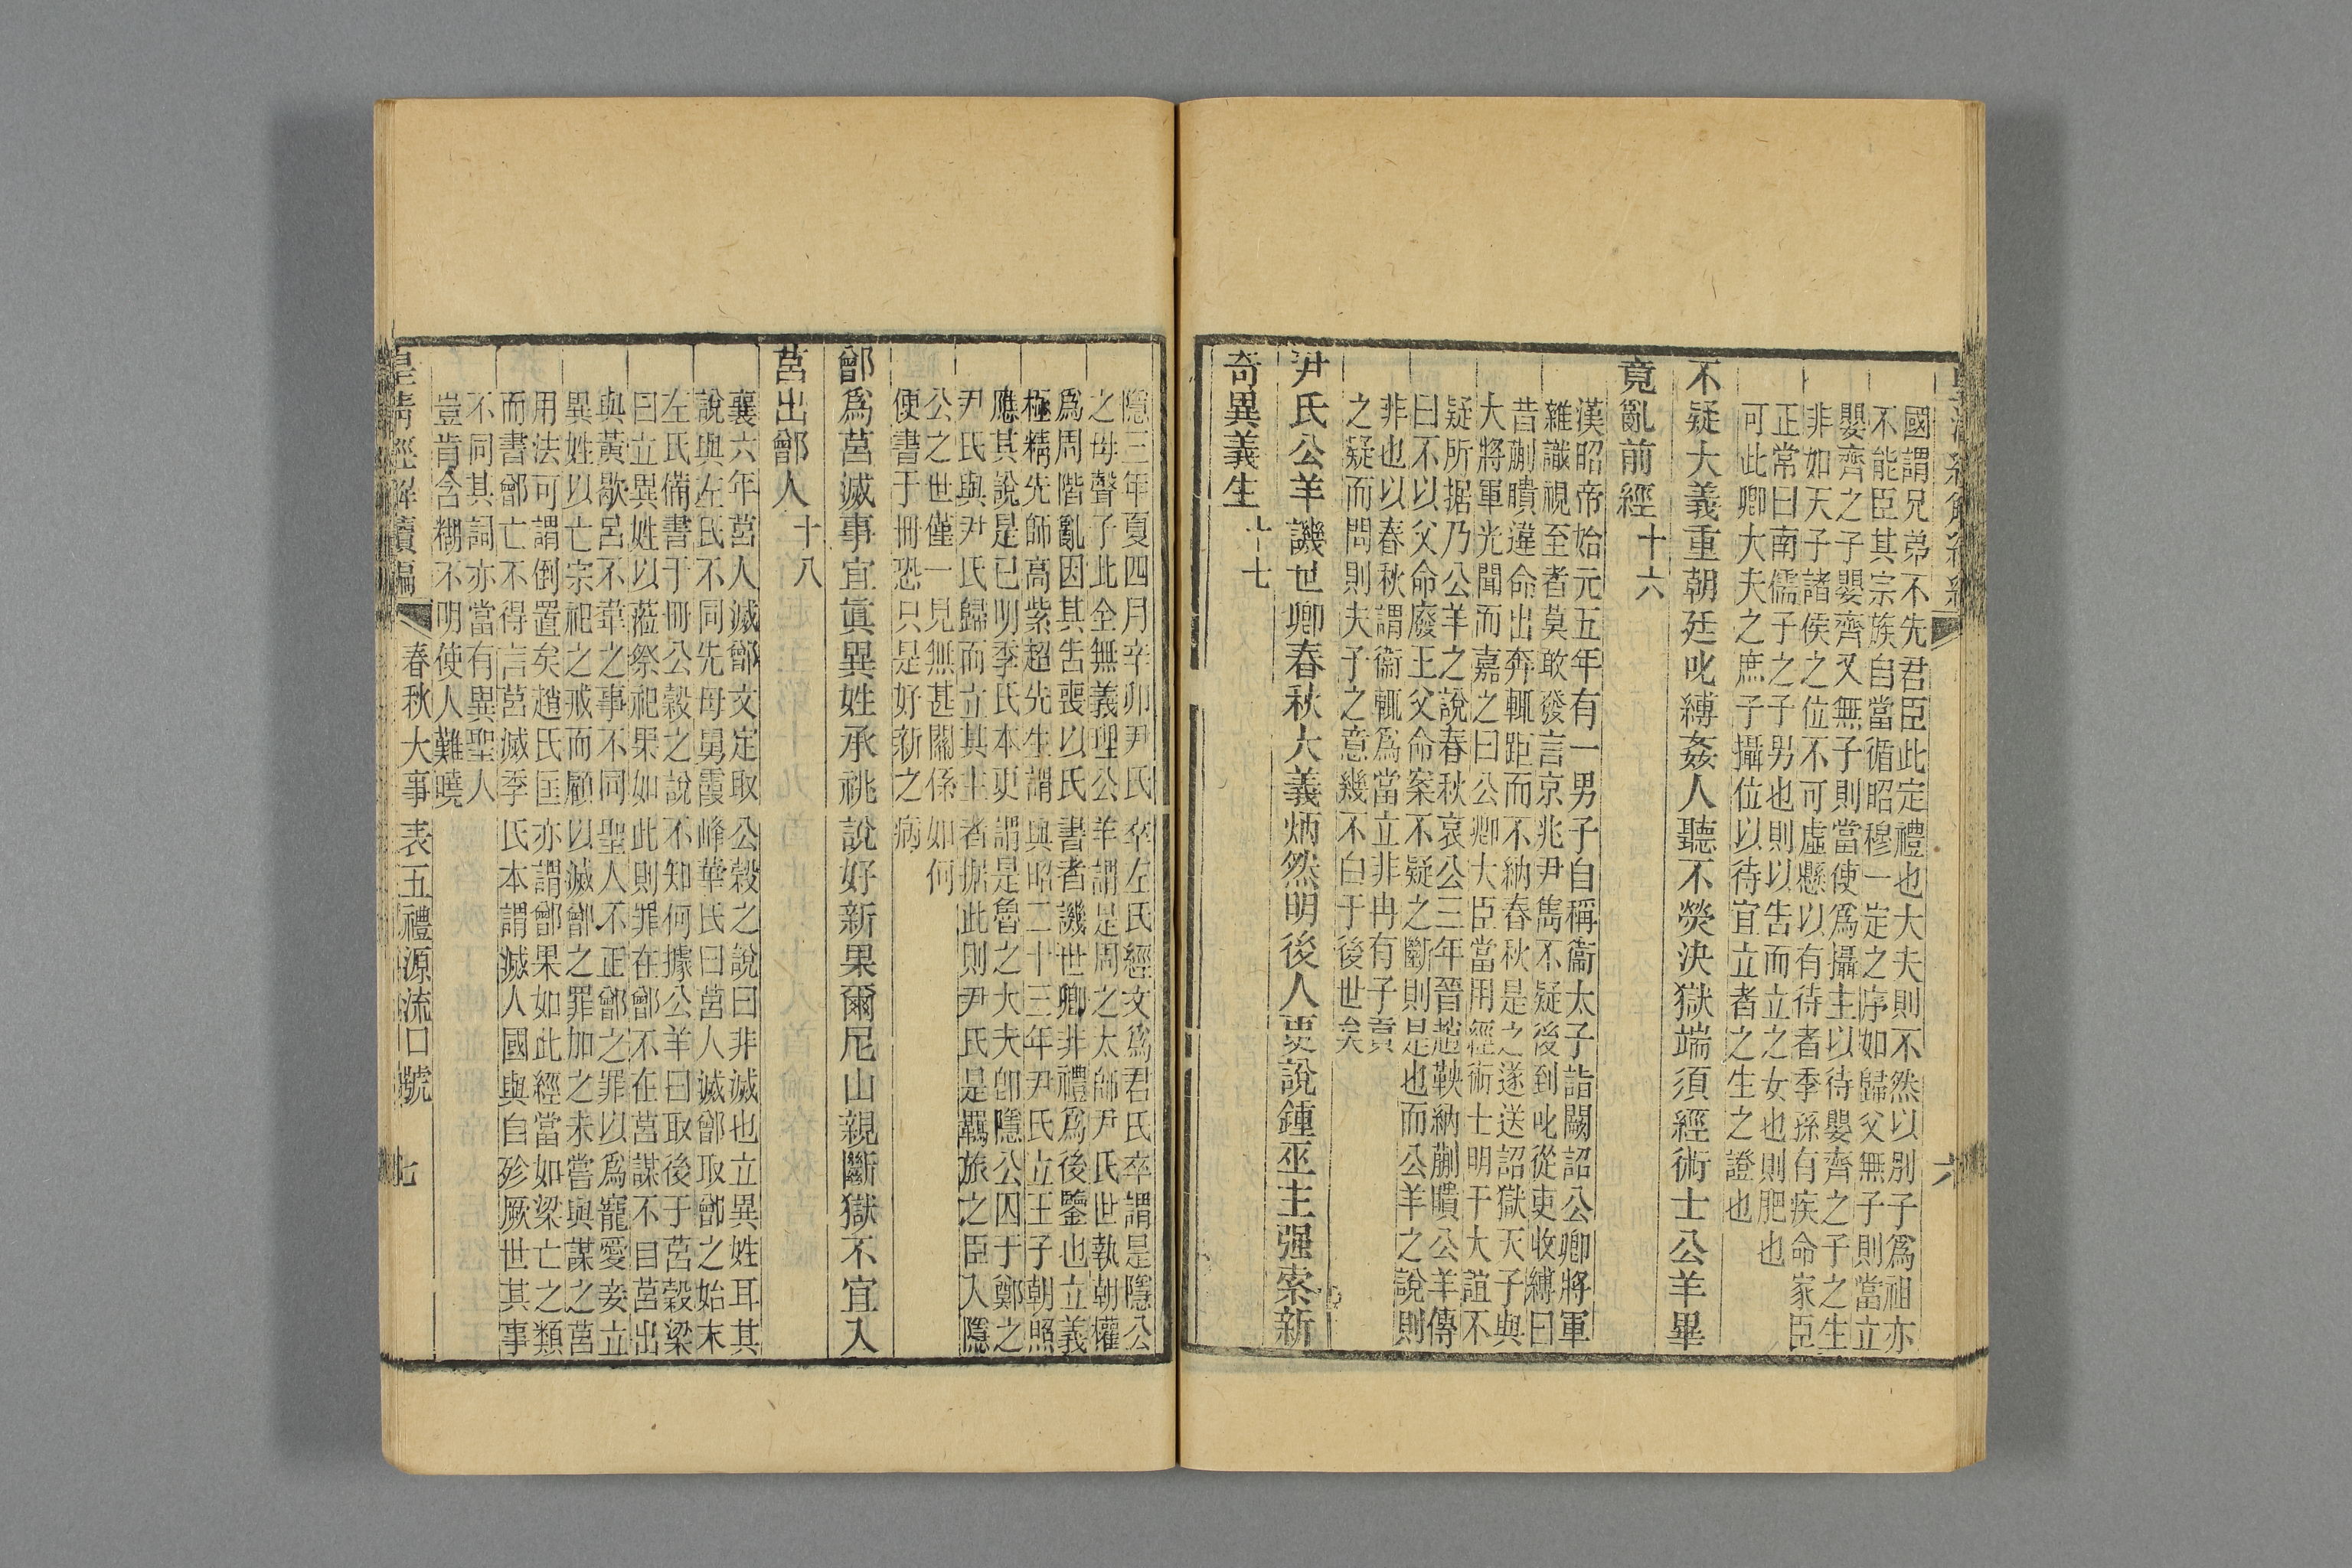 國謂兄弟不先君臣此定禮也大夫則不然以別子爲祖亦
不能臣其宗族自當循昭穆一定之序如歸父無子則當立
嬰齊之子嬰齊又無子則當使爲攝主以待嬰齊之子之生
非如天子諸侯之位不可虛懸以有待者季孫有疾命家臣
正常曰南儒子之子男也則以告而立之女也則肥也
可此卿大夫之庶子攝位以待宜立者之生之證也
不疑大義重朝廷叱縛姦人聽不熒決獄端須經術士公羊畢
竟亂前經十六
漢昭帝始元五年有一男子自稱衞太子詣闕詔公卿將軍
雜識視至者莫敢發言京兆尹雋不疑後到叱從吏收縛曰
昔蒯聵違命出奔輒距而不納春秋是之遂送詔獄天子與
大將軍光聞而嘉之曰公卿大臣當用經術士明于大誼不
疑所据乃公羊之說春秋哀公三年晉趙鞅納蒯聵公羊傳
曰不以父命廢王父命案不疑之斷則是也而公羊之說則
非也以春秋謂衞輒爲當立非冉有子貢
之疑而問則夫子之意幾不白于後世矣
尹氏公羊譏世卿春秋大義炳然明後人更說鍾巫主强索新
奇異義生十七
六
隱三年夏四月辛卯尹氏卒左氏經文爲君氏卒謂是隱公
之母聲子此全無義理公羊謂是周之太師尹氏世執朝權
爲周階亂因其告喪以氏書者譏世卿非禮爲後鑒也立義
極精先師高紫超先生謂與昭二十三年尹氏立王子朝照
應其說是已明季氏本更謂是魯之大夫卽隱公囚于鄭之
尹氏與尹氏歸而立其主者据此則尹氏是羈旅之臣入隱
公之世僅一見無甚關係如何
便書于冊恐只是好新之病
鄫爲莒滅事宜眞異姓承祧說好新果爾尼山親斷獄不宜入
莒出鄫人十八
襄六年莒人滅鄫文定取公穀之說曰非滅也立異姓耳其
說與左氏不同先母舅霞峰華氏曰莒人滅鄫取鄫之始末
左氏備書于冊公穀之說不知何據公羊曰取後于莒穀梁
曰立異姓以蒞祭祀果如此則罪在鄫不在莒謀不自莒出
與黃歇呂不韋之事不同聖人不正鄫之罪以爲寵愛妾立
異姓以亡宗祀之戒而顧以滅鄫之罪加之未嘗與謀之莒
用法可謂倒置矣趙氏匡亦謂鄫果如此經當如梁亡之類
而書鄫亡不得言莒滅季氏本謂滅人國與自殄厥世其事
不同其詞亦當有異聖人
豈肯含糊不明使人難曉
皇清經解續編 春秋大事表五禮源流口號 七